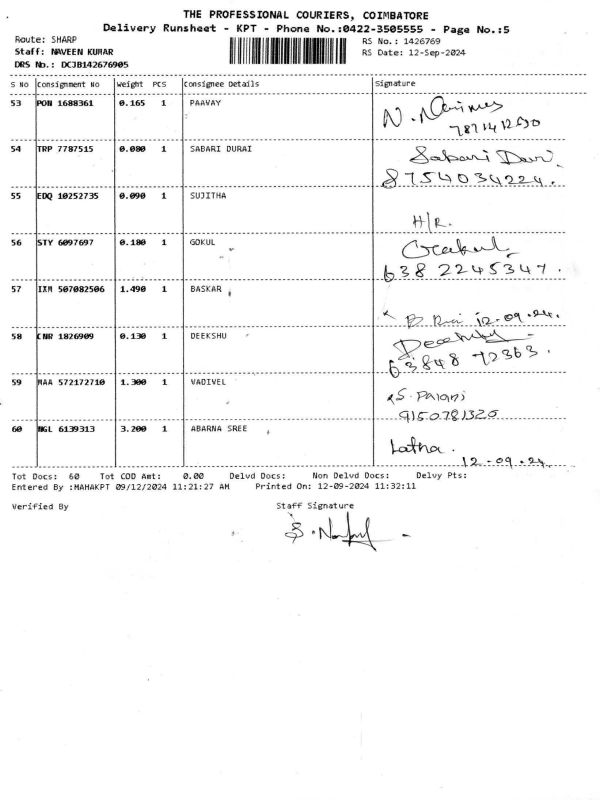 THE PROFESSIONAL COURIERS, COIMBATORE
Delivery Runsheet - KPT - Phone No.:0422-3505555 - Page No.:5
Route: SHARP RS No.: 1426769
Staff: NAVEEN KUMAR RS Date: 12-Sep-2024
DRS No.: DCJB142676905
S No Consignment No Weight PCS Consignee Details Signature
53 PON 1688361 0.165 1 PAAVAY N.
54 TRP 7787515 0.080 1 SABARI DURAI Sabari Duri.
8754034224.
55 EDQ 10252735 0.090 1 SUJITHA
H/R.
56 STY 6097697 0.180 1 GOKUL Gokul
638 2245347.
57 IXM 507082506 1.490 1 BASKAR
B 12-09-24.
58 CNR 1826909 0.130 1 DEEKSHU
63848 72363.
59 MAA 572172710 1.300 1 VADIVEL S. Palani
9150781320
60 NGL 6139313 3.200 1 ABARNA SREE Latha.
12-09-24
Tot Docs: 60 Tot COD Amt: 0.00 Delvd Docs: Non Delvd Docs: Delvy Pts:
Entered By :MAHAKPT 09/12/2024 11:21:27 AM Printed On: 12-09-2024 11:32:11
Verified By Staff Signature